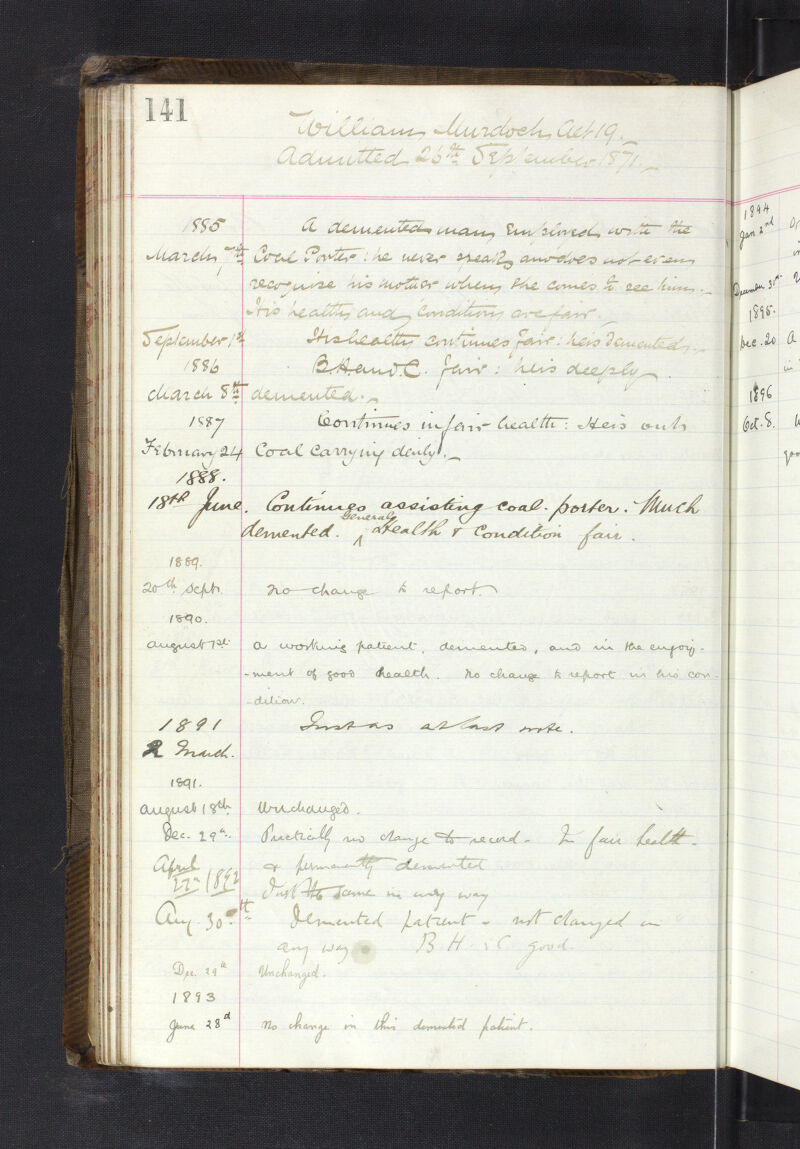 141
William Murdoch, Aet 19.
Admitted 26th September 1871.
1885 A demented man, Employed with the
March 7th Coal Porter: he never speaks, and does not even
recognise his mother when she comes to see him.
His health and Condition are fair.
September 1st His health continues fair: he is demented.
1886 B.H. and C. fair: he is deeply
March 8th demented.
1887 Continues in fair health: He is out
February 24 Coal Carrying daily.
1888.
18th June. Continues assisting coal-porter. Much
demented. General Health & Condition fair.
1889.
20th Sept. No change to report.
1890.
August 1st A working patient, demented, and in the enjoy-
-ment of good health. No change to report in his con-
-dition.
1891 Just as at last note.
2 March.
1891.
August 18th. Unchanged.
Dec. 29th. Practically no change to record. In fair health.
April & permanently demented
22nd 1892 Just the same in every way
Aug. 30th Demented patient - not changed in
any way. B H & C good.
Dec. 29th Unchanged.
1893
June 28d No change in this demented patient.
1894
Jan 2nd
December 31st
1895.
Dec. 20 A
in
1896
Oct. 8.